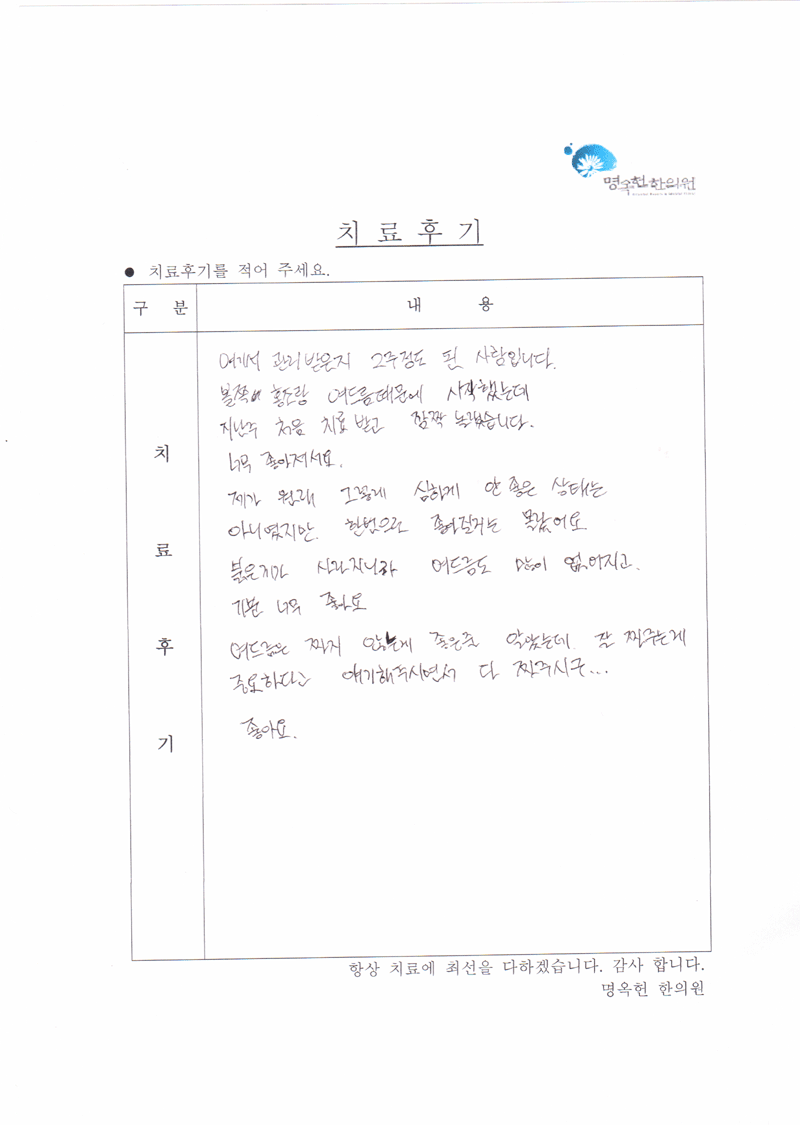 명옥헌한의원
치 료 후 기
● 치료후기를 적어 주세요.
구 분
내 용
치
료
후
기
여기서 관리받은지 2주정도 된 사람입니다.
볼쪽에 홍조랑 여드름때문에 시작했는데
지난주 처음 치료 받고 깜짝 놀랐습니다.
너무 좋아져서요.
제가 원래 그렇게 심하게 안 좋은 상태는
아니였지만. 한번으로 좋아질거는 몰랐어요
붉은기가 사라지니라 여드름도 많이 없어지고.
기분 너무 좋아요
여드름은 짜지 않는게 좋은줄 알았는데. 잘 짜주는게
중요하다고 얘기해주시면서 다 짜주시구...
좋아요.
항상 치료에 최선을 다하겠습니다. 감사 합니다.
명옥헌 한의원